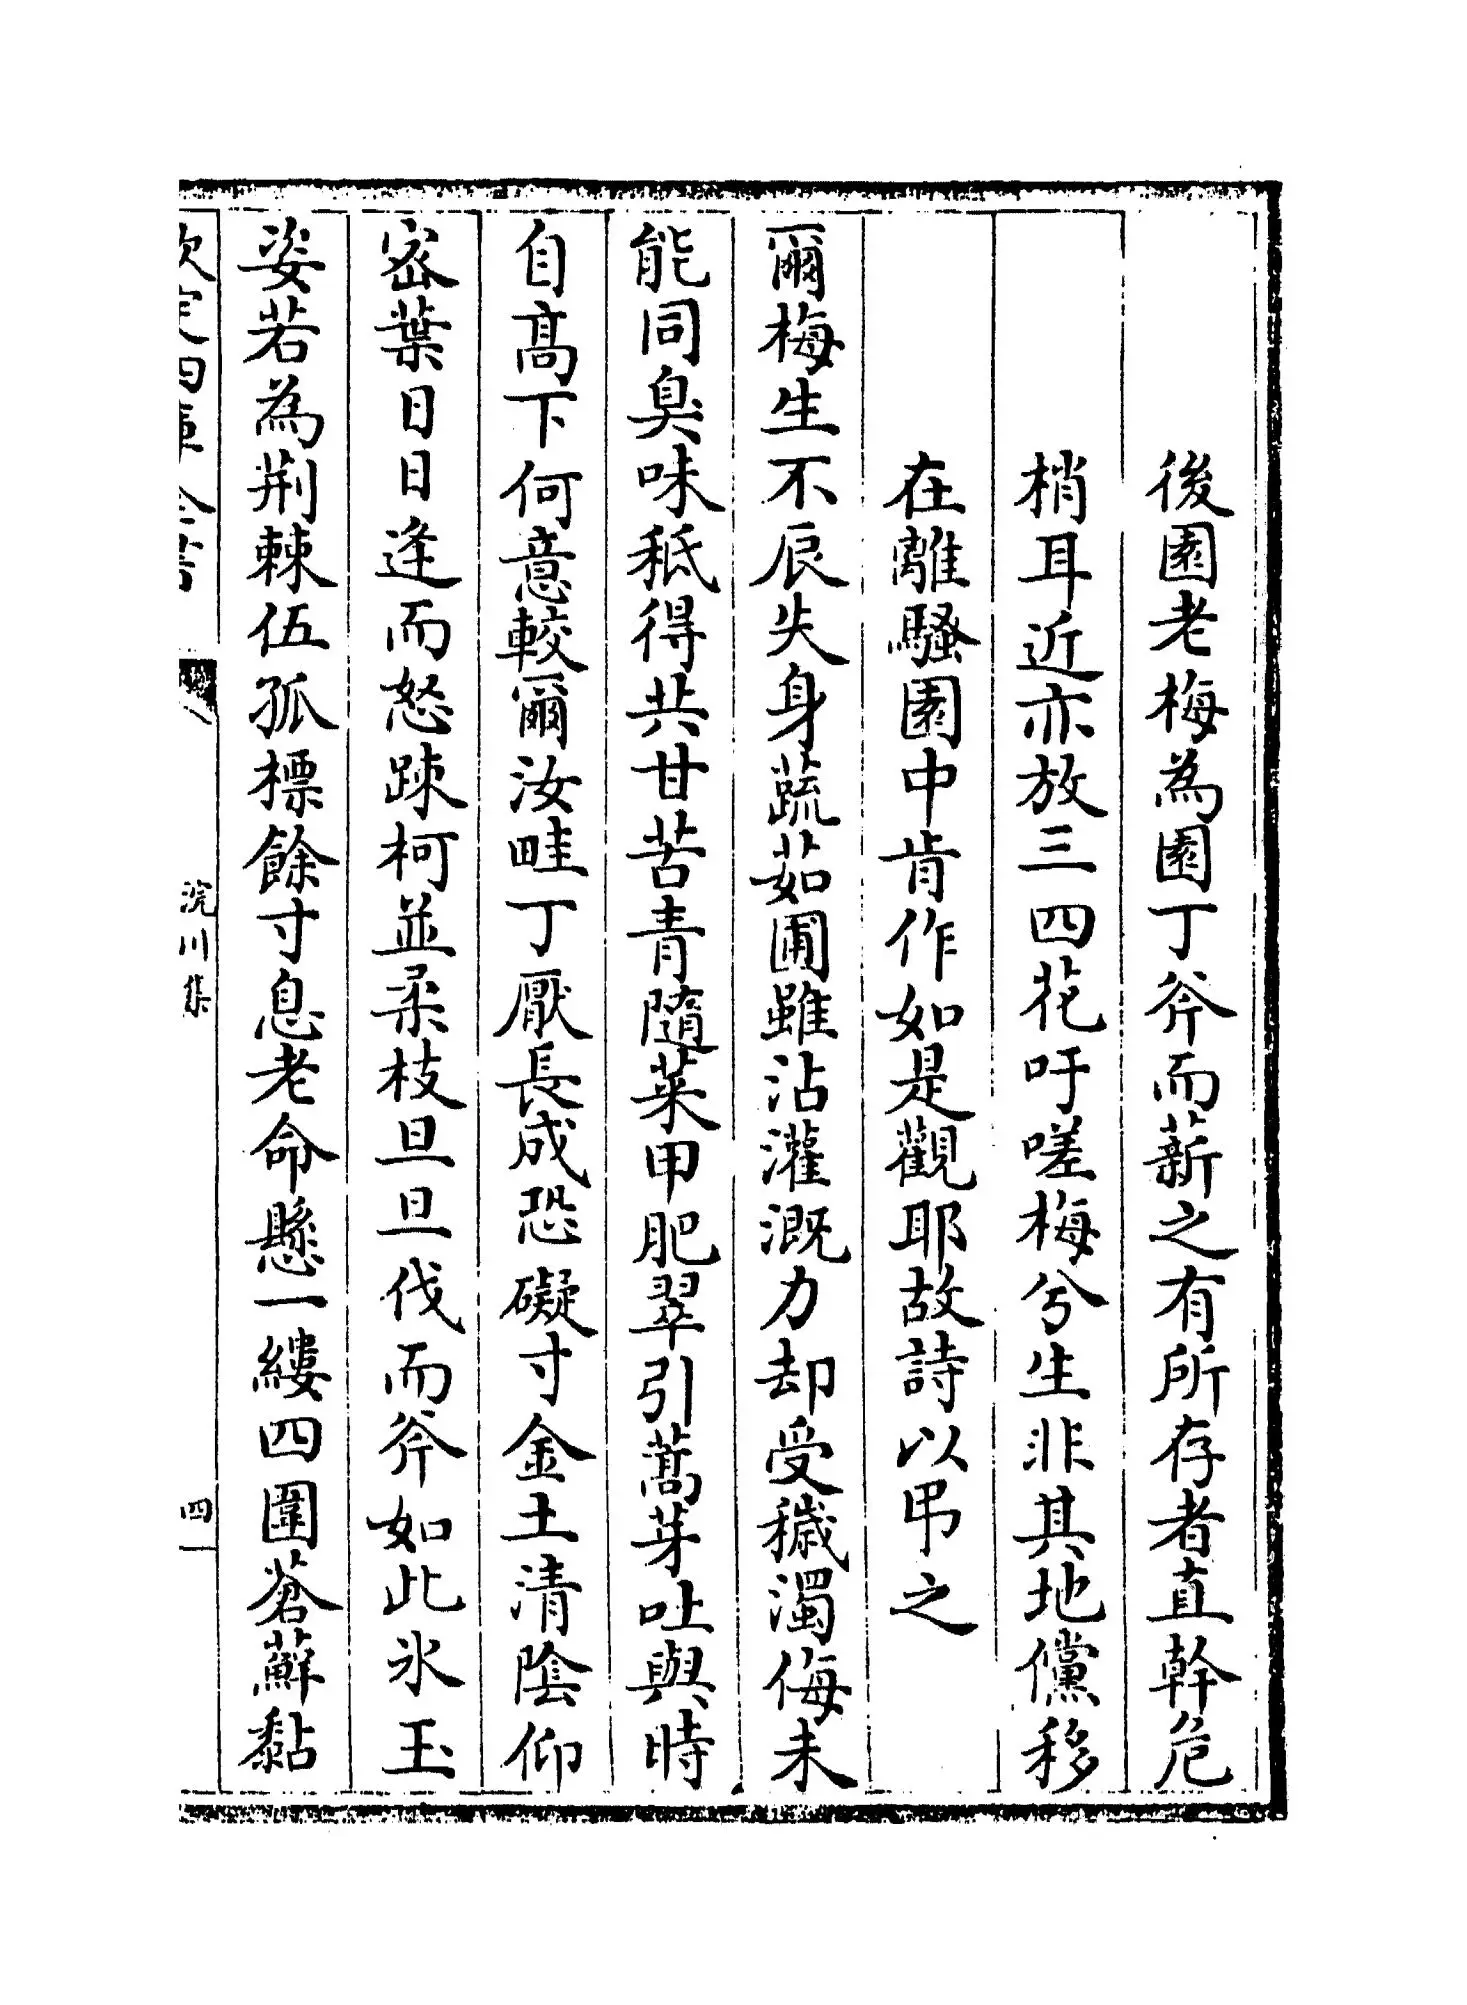 後園老梅為園丁斧而薪之有所存者直幹危
梢耳近亦放三四花吁嗟梅兮生非其地儻移
在離騷園中肯作如是觀耶故詩以弔之
爾梅生不辰失身蔬茹圃雖沾灌溉力却受穢濁侮未
能同臭味秪得共甘苦青隨菜甲肥翠引蒿芽吐與時
自高下何意較爾汝畦丁厭長成恐礙寸金土清陰仰
宻葉日日逢而怒踈柯並柔枝旦旦伐而斧如此氷玉
姿若為荆棘伍孤標餘寸息老命懸一縷四圍蒼蘚黏
欽定四庫全書
浣川集
四